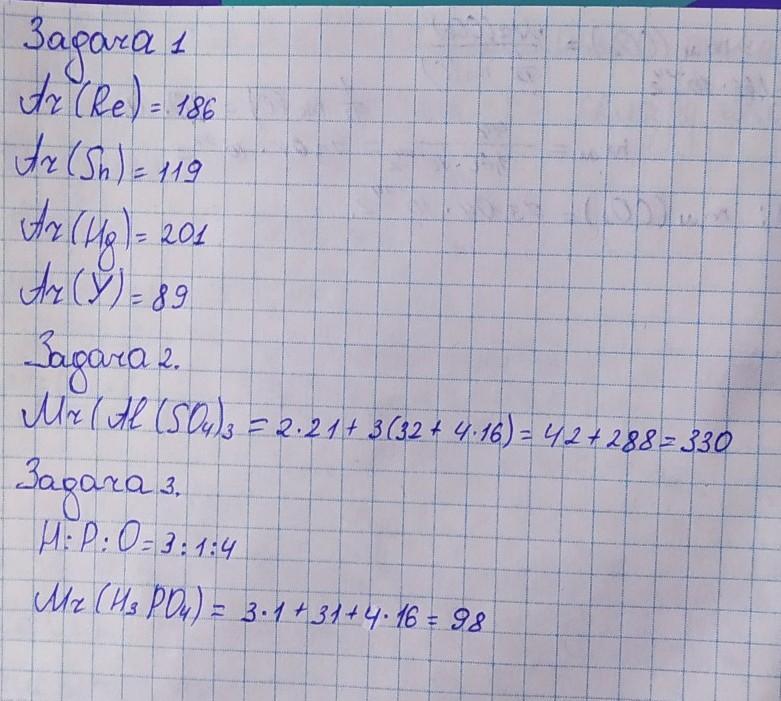 Задача 1
Ar(Re) = 186
Ar(Sn) = 119
Ar(Hg) = 201
Ar(Y) = 89
Задача 2.
Mr(Al(SO₄)₃ = 2·21 + 3(32 + 4·16) = 42 + 288 = 330
Задача 3.
H:P:O = 3:1:4
Mr(H₃PO₄) = 3·1 + 31 + 4·16 = 98